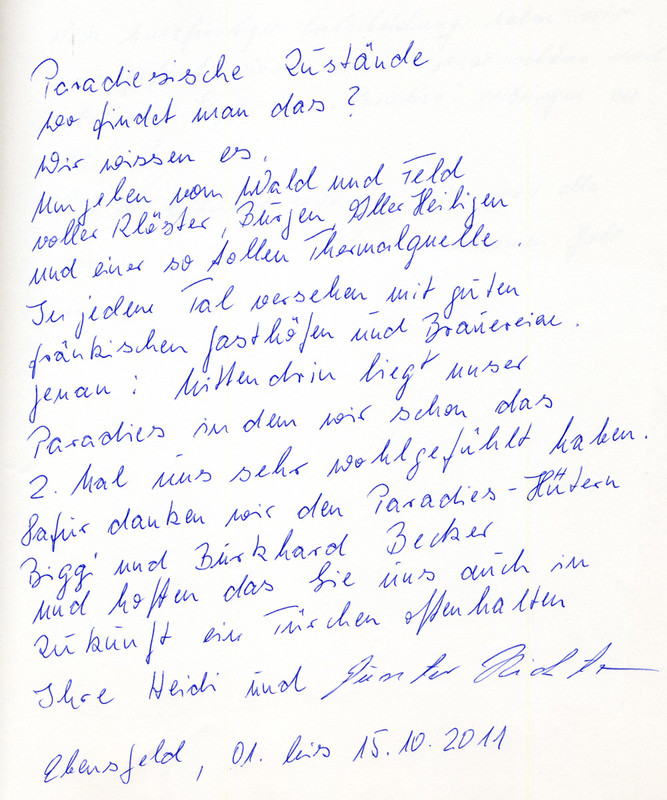 Paradiesische Zustände
wo findet man das?
Wir wissen es.
Umgeben vom Wald und Feld
voller Klöster, Burgen, Aller Heiligen
und einer so tollen Thermalquelle.
In jedem Tal versehen mit guten
fränkischen Gasthöfen und Brauereien.
Genau: Mittendrin liegt unser
Paradies in dem wir schon das
2. Mal uns sehr wohlgefühlt haben.
Dafür danken wir den Paradies-Hütern
Biggi und Burkhard Becker
und hoffen das Sie uns auch in
Zukunft ein Türchen offenhalten
Ihre Heidi und Günter Richter
Ebensfeld, 01. bis 15.10.2011